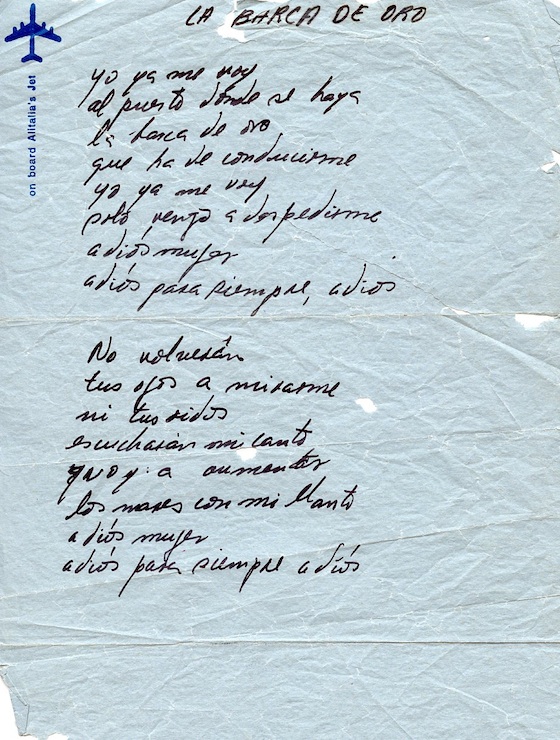 LA BARCA DE ORO
on board Alitalia's Jet
yo ya me voy
al puerto donde se haya
la barca de oro
que ha de conducirme
yo ya me voy
solo vengo a despedirme
adiós mujer
adiós para siempre, adios
No volverán
tus ojos a mirarme
ni tus oidos
escucharán mi canto
y voy a aumentar
los mares con mi llanto
adiós mujer
adiós para siempre adiós